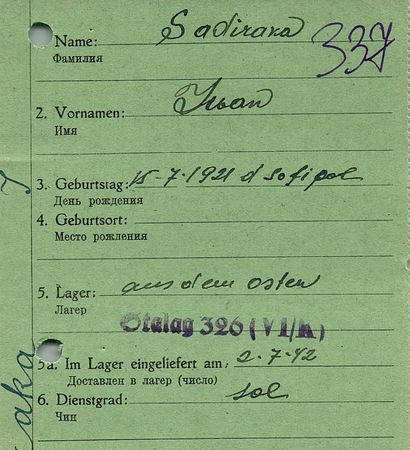 Name: Sadiraka 337
Фамилия
2. Vornamen: Iwan
Имя
3. Geburtstag: 15-7-1921 d Sofipol
День рождения
4. Geburtsort:
Место рождения
5. Lager: aus dem osten
Лагер
Stalag 326 (VI/K)
5a. Im Lager eingeliefert am: 2-7-42
Доставлен в лагер (число)
6. Dienstgrad: sol
Чин
aka